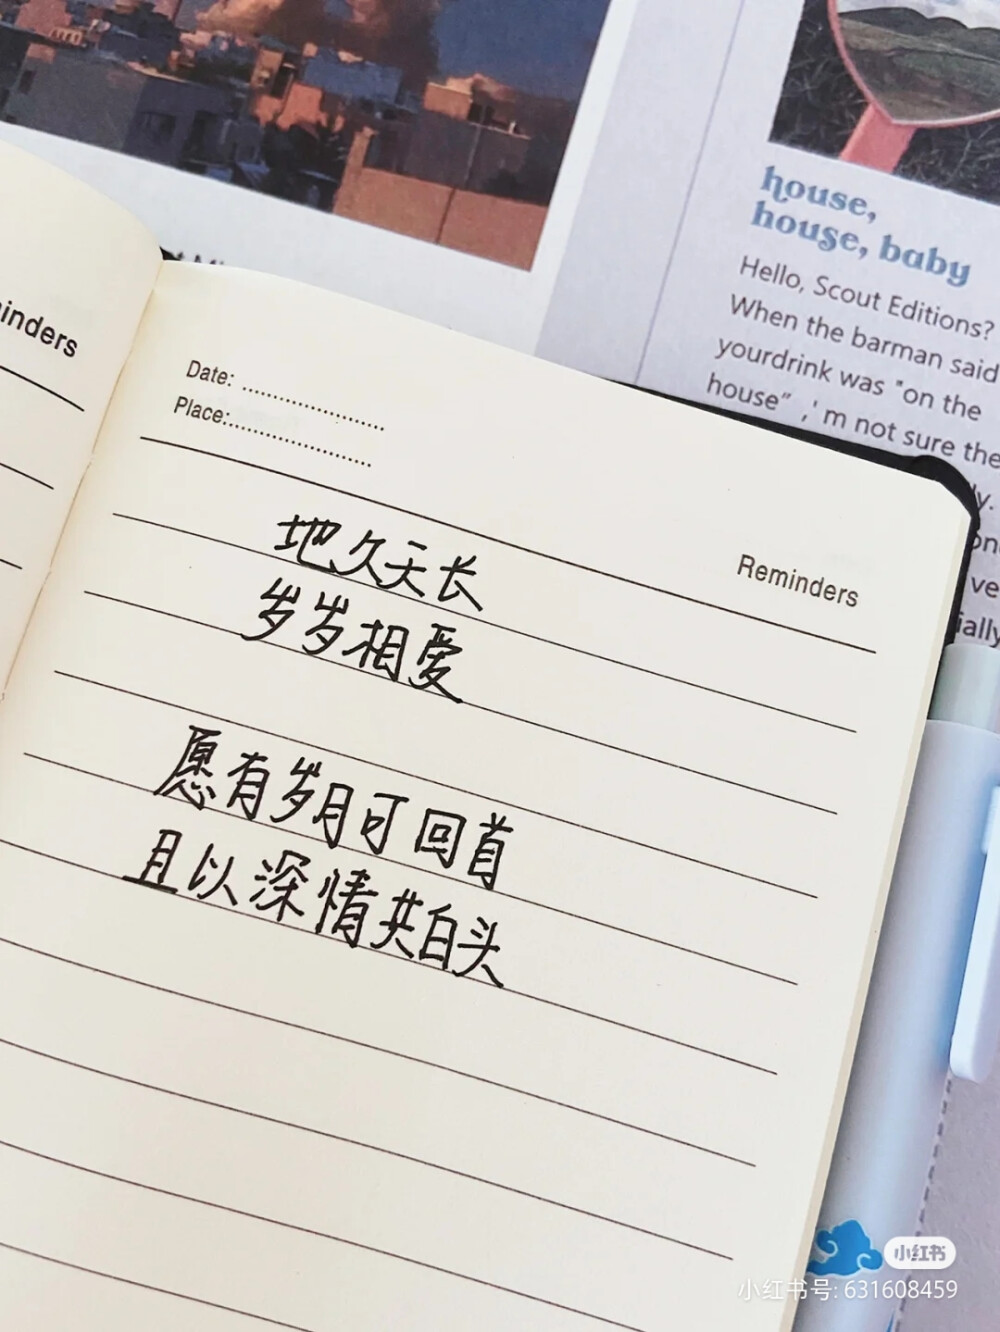 house,
house, baby
Hello, Scout Editions?
When the barman said
yourdrink was "on the
house" ,' m not sure the
inders
Date:
Place:
Reminders
地久天长
岁岁相爱
愿有岁月可回首
且以深情共白头
小红书
小红书号: 631608459